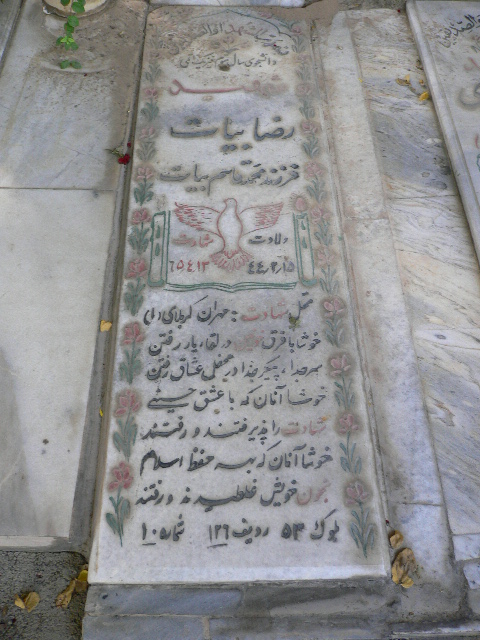 دانشجوی سال
شهید
رضا بیات
فرزند محمد قاسم بیات
ولادت
شهادت
۴۴٫۲٫۱۵
۶۵٫۴٫۱۳
محل شهادت : مهران کربلای (۱)
خوشا با فرق خونین در لقاء یار رفتن
سر جدا ، پیکر جدا در محفل عشاق رفتن
خوشا آنان که با عشق حسینی
شهادت را پذیرفتند و رفتند
خوشا آنان که بهر حفظ اسلام
بخون خویش غلطیدند و رفتند
بلوک ۵۳ ردیف ۱۲۶ شماره ۱۰۵